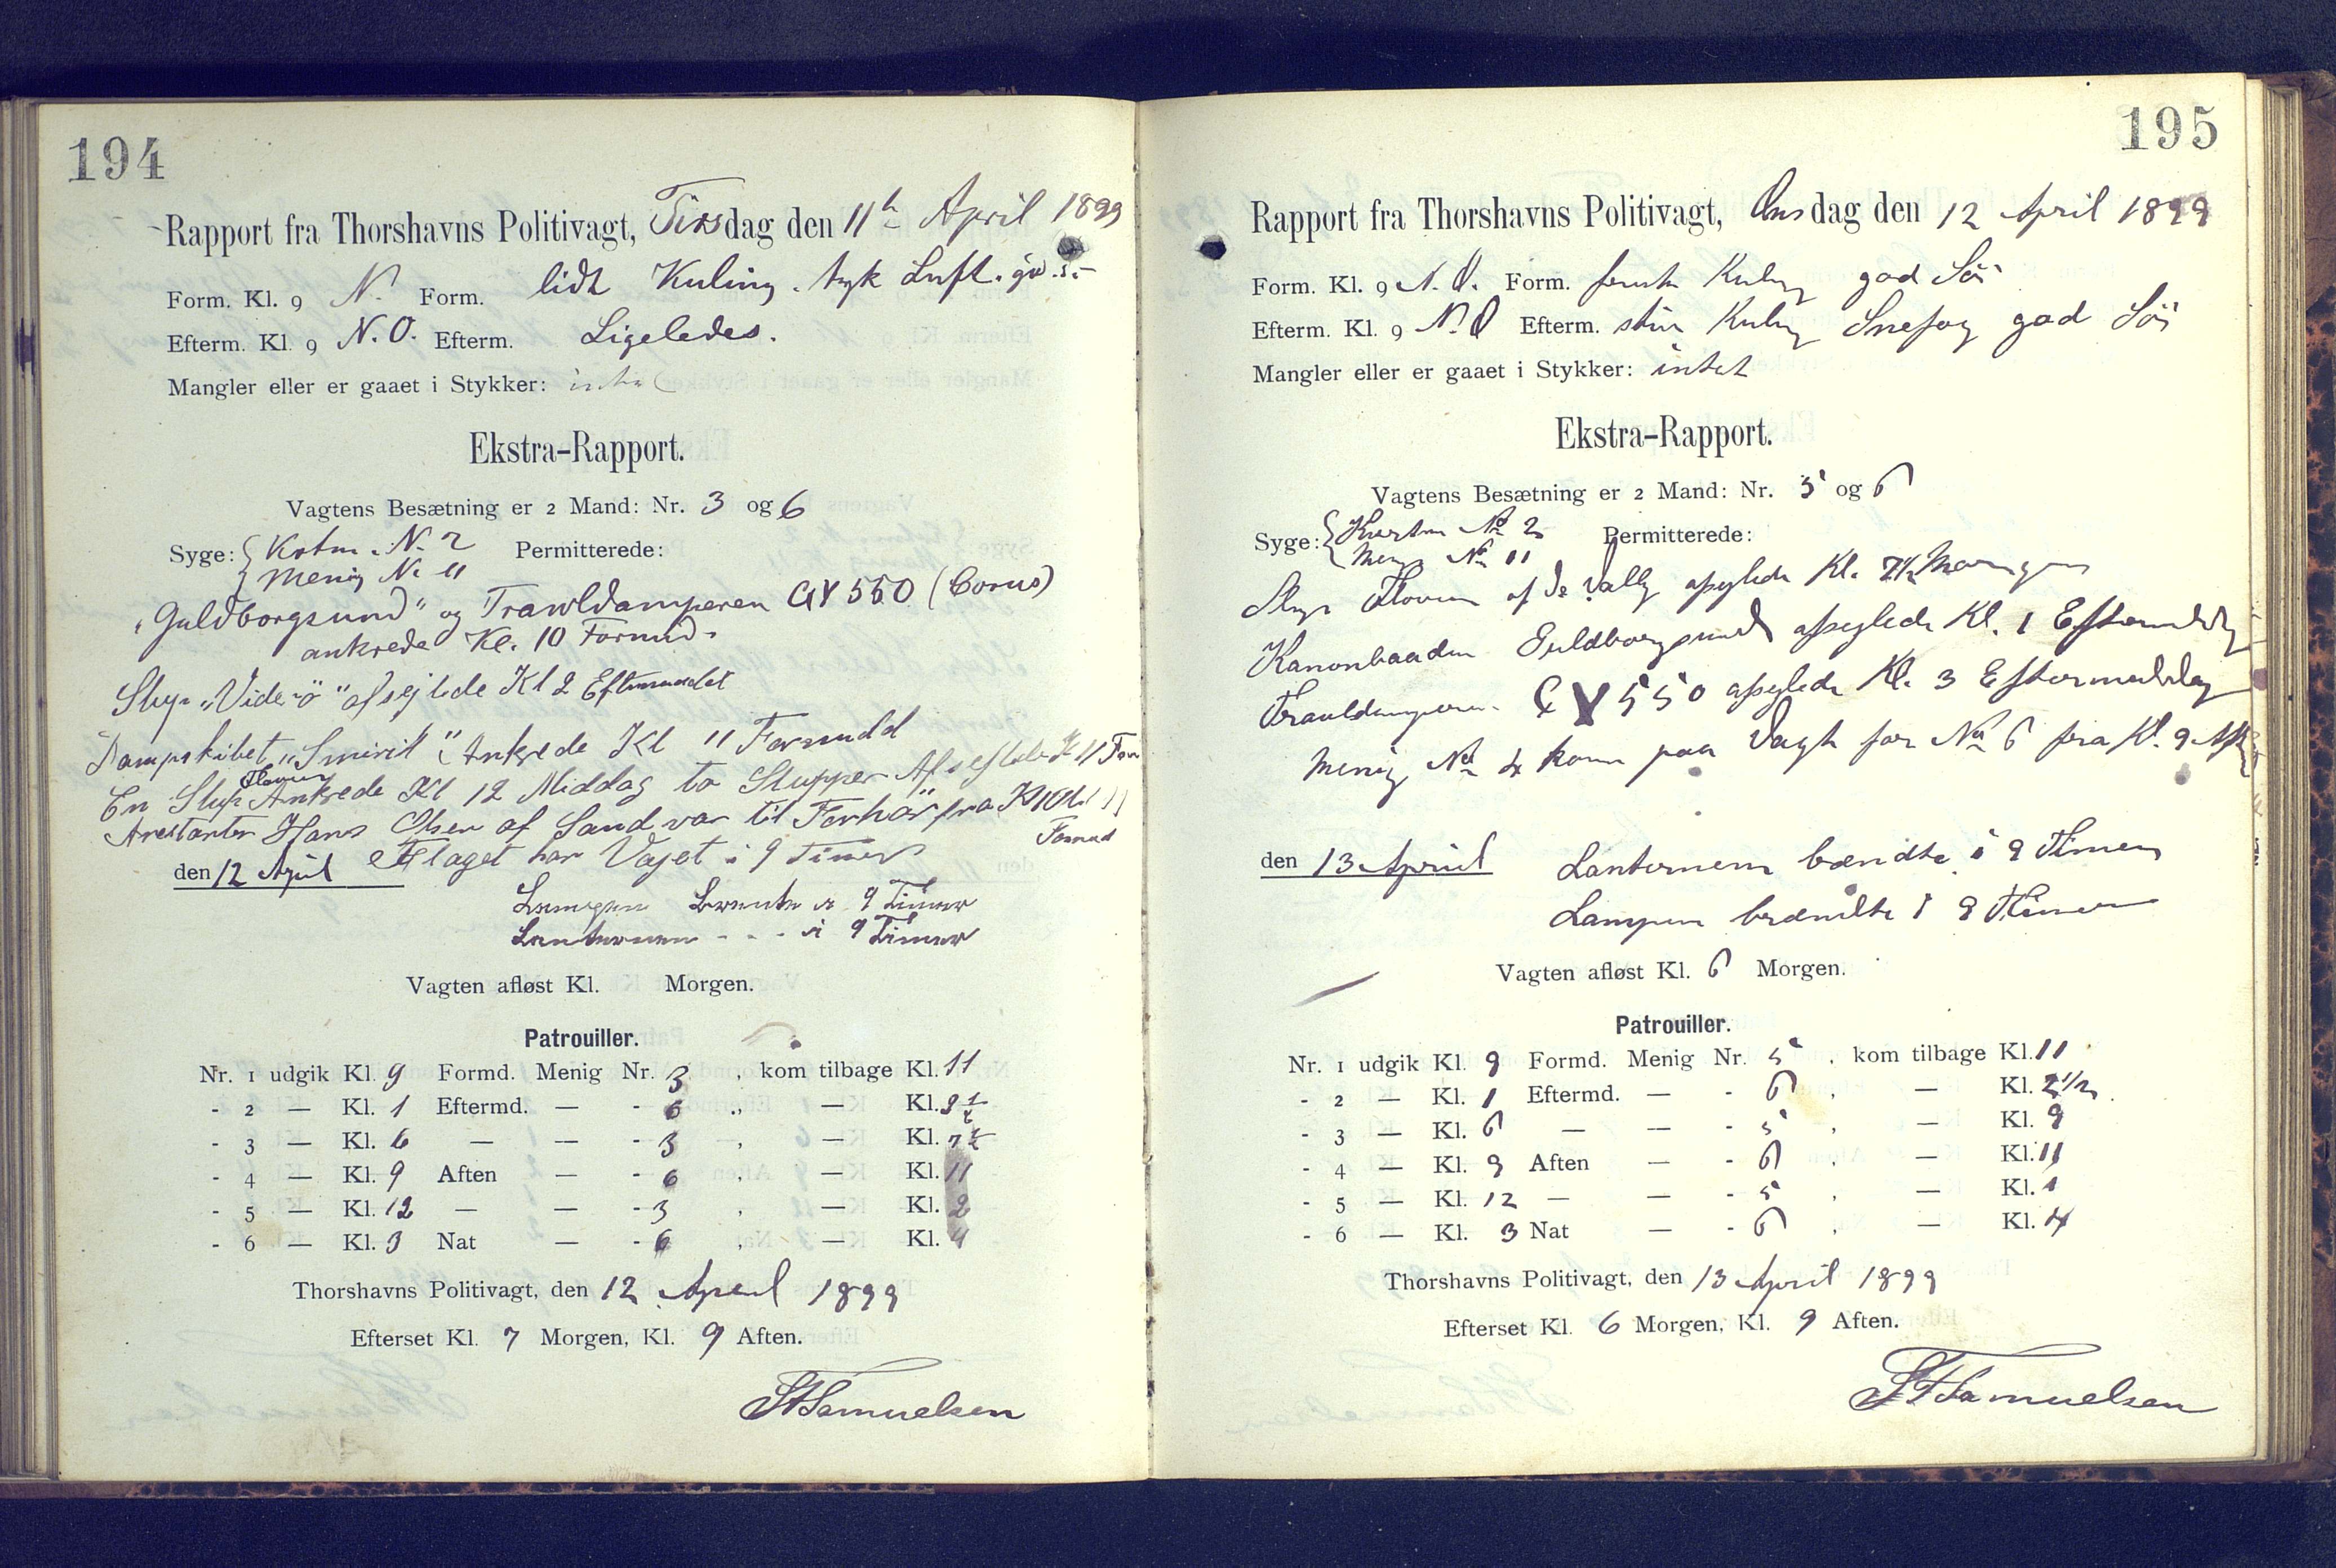 194
Rapport fra Thorshavns Politivagt, Tirsdag den 11te April 1899
Form. Kl. 9 N. Form. lidt Kuling. tyk Luft. go. s.
Efterm. Kl. 9 N.O. Efterm. Ligeledes.
Mangler eller er gaaet i Stykker: intet
Ekstra-Rapport.
Vagtens Besætning er 2 Mand: Nr. 3 og 6
Syge: Kvtm. N. 2 Permitterede:
Menig N. 11
"Guldborgsund" og Trawldamperen GY 550 (Corus)
ankrede Kl. 10 Formid.
Slup "Viderö" afsejlede Kl 2 Eftmiddt
Dampskibet "Smiril" Ankrede Kl 11 Formidd
En Slup Ankrede Kl 12 Middag to Slupper Afsejlede Kl 11 For
Arrestanten Hans Olsen af Sand var til Forhör fra Kl 10 til 11
Formd
den 12 April Flaget har Vajet i 9 Timer
Lampen Brente i 9 Timer
Lanternen - - - i 9 Timer
Vagten afløst Kl. Morgen.
Patrouiller.
Nr. 1 udgik Kl. 9 Formd. Menig Nr. 3, kom tilbage Kl. 11
- 2 — Kl. 1 Eftermd. — - 6 „ — Kl.
- 3 — Kl. 6 — — - 3 „ — Kl. 7½
- 4 — Kl. 9 Aften — - 6 , — Kl. 11
- 5 — Kl. 12 — — - 3 , — Kl. 2
- 6 — Kl. 3 Nat — - 6 , — Kl. 4
Thorshavns Politivagt, den 12 April 1899
Efterset Kl. 7 Morgen, Kl. 9 Aften.
Samuelsen
195
Rapport fra Thorshavns Politivagt, Onsdag den 12 April 1899
Form. Kl. 9 N.O. Form. frisk Kuling god Sö
Efterm. Kl. 9 N.O Efterm. stiv Kuling Snefog god Sö
Mangler eller er gaaet i Stykker: intet
Ekstra-Rapport.
Vagtens Besætning er 2 Mand: Nr. 5 og 6
Syge: No 2 Permitterede:
Menig No 11
Slup af afsejlede Kl. 7½ Morgen
Kanonbaaden Guldborgsund afsejlede Kl. 1 Eftermiddag
Trauldamperen GY 550 afsejlede Kl. 3 Eftermiddag
Menig No 4 kom paa Vagt for No 6 fra Kl. 9 Aft
den 13 April Lanternen brendte i 9 Timer
Lampen brændte i 9 Timer
Vagten afløst Kl. 6 Morgen.
Patrouiller.
Nr. 1 udgik Kl. 9 Formd. Menig Nr. 5, kom tilbage Kl. 11
- 2 — Kl. 1 Eftermd. — - 6 , — Kl. 2½
- 3 — Kl. 6 — — - 5 , — Kl. 9
- 4 — Kl. 9 Aften — - 6 , — Kl. 11
- 5 — Kl. 12 — — - 5 , — Kl. 1
- 6 — Kl. 3 Nat — - 6 , — Kl. 4
Thorshavns Politivagt, den 13 April 1899
Efterset Kl. 6 Morgen, Kl. 9 Aften.
Samuelsen